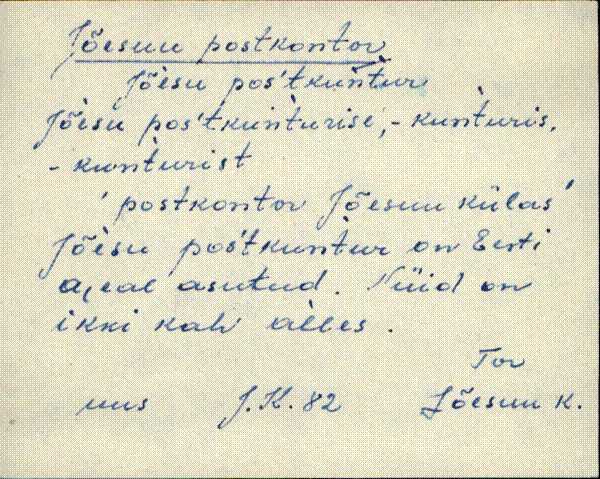 Jõesuu postkontor
Jõesu pos'tkuntur
Jõesu pos'tkunturise, - kunturis,
- kunturist
'postkontor Jõesuu külas'
Jõesu pos'tkuntur on Eesti
ajeal asutud. Nüid on
ikki kah alles.
Tor
uus J.K. 82 Jõesuu k.